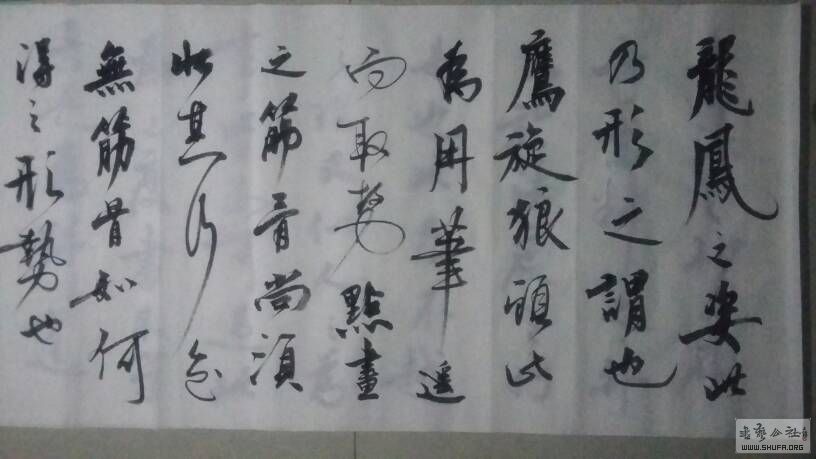 龍鳳之姿此
乃形之謂也
鷹旋狼顧此
為用筆遥
向取勢點畫
之筋骨尚須
此其
無筋骨如何
得之形勢也
书艺公社
WWW.SHUFA.ORG